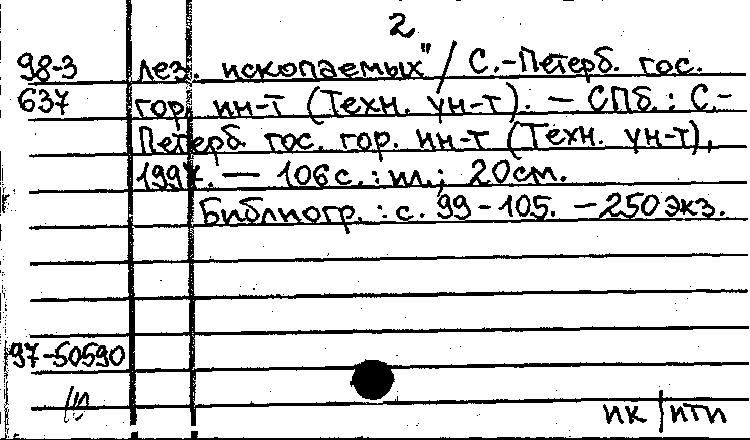 2
98-3 лез. ископаемых" / С.-Петерб. гос.
637 гор. ин-т (Техн. ун-т). — СПб. : С.-
Петерб. гос. гор. ин-т (Техн. ун-т),
1997. — 106 с. : ил.; 20 см.
Библиогр. : с. 99-105. — 250 экз.
97-50590
ПК / ПТП